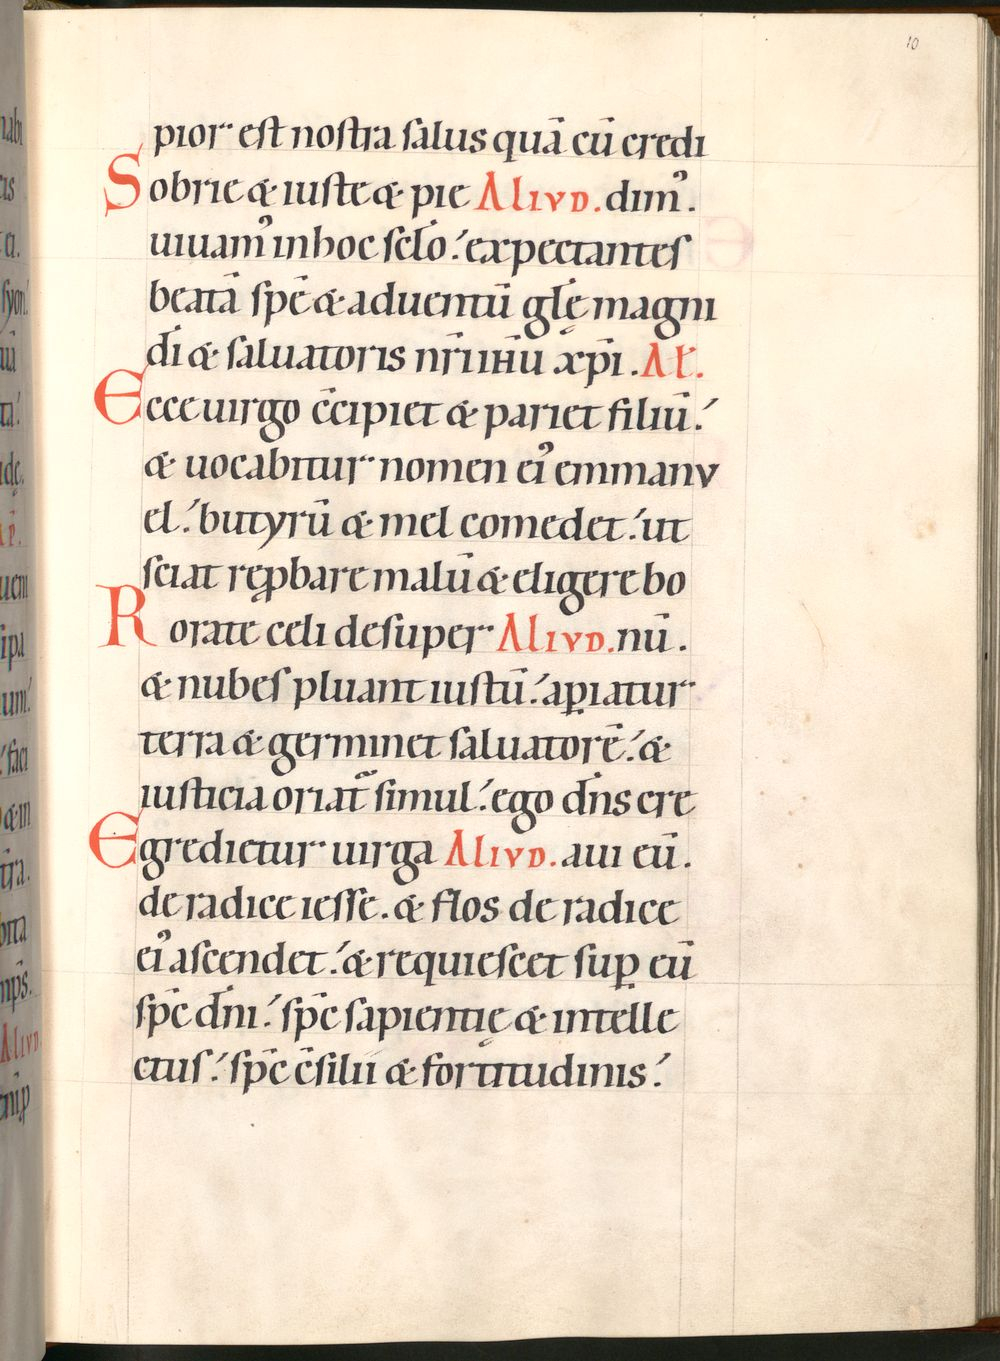 10
pior est nostra salus quā cū credi
Sobrie & iuste & pie ALIVD. dimꝰ.
uiuamꝰ in hoc sclō. expectantes
beatā spē & aduentū glę̄ magni
dī & saluatoris nr̄i ihū xp̄i. Al̄.
Ecce uirgo c̄cipiet & pariet filiū.
& uocabitur nomen eiꝰ emmanv
el. butyrū & mel comedet. ut
sciat rep̱bare malū & eligere bo
Rorate celi desuper ALIVD. nū.
& nubes pluant iustū. ap̱iatur
terra & germinet saluatorē. &
iusticia oriat᷑ simul. ego dn̄s cre
Egredietur uirga ALIVD. aui eū.
de radice iesse. & flos de radice
eiꝰ ascendet. & requiescet sup̱ eū
sp̄c dn̄i. sp̄c sapientię & intelle
ctus. sp̄c c̄silii & fortitudinis.